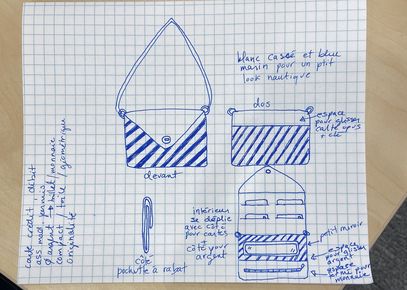 blanc cassé et bleu
marin pour un ptit
look nautique
dos
espace
pour glisser
carte opus
+ clé
devant
carte crédit débit
ass. mal. permis
Ø argent → billet/monnaie
compact / toile / géométrique
originalité
côté
pochette à rabat
intérieur
se déplie
avec côté
pour cartes
côté pour
argent
ptit miroir
espace
pour glisser
argent
espace
pour
monnaie